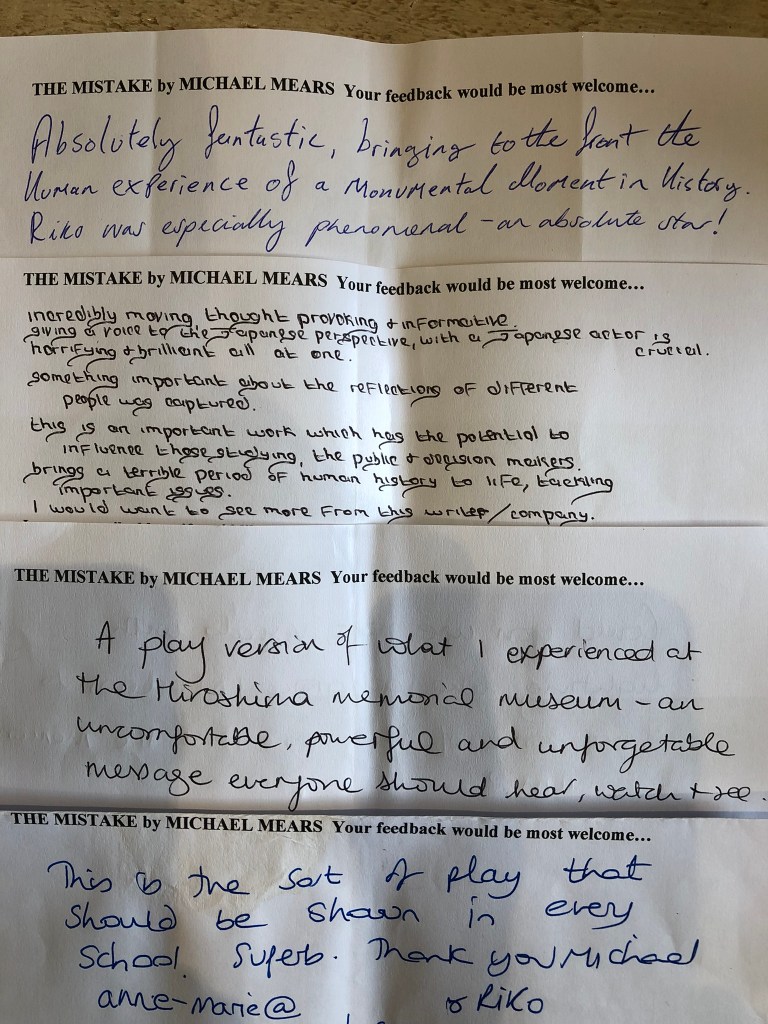 THE MISTAKE by MICHAEL MEARS Your feedback would be most welcome...
Absolutely fantastic, bringing to the front the
Human experience of a Monumental Moment in History.
Riko was especially phenomenal - an absolute star!
THE MISTAKE by MICHAEL MEARS Your feedback would be most welcome...
incredibly moving thought provoking & informative.
giving a voice to the Japanese perspective, with a Japanese actor is
crucial.
horrifying & brilliant all at one.
something important about the reflections of different
people was captured.
this is an important work which has the potential to
influence those studying, the public & decision makers.
brings a terrible period of human history to life, tackling
important issues.
I would want to see more from this writer/company.
THE MISTAKE by MICHAEL MEARS Your feedback would be most welcome...
A play version of what I experienced at
the Hiroshima memorial museum - an
uncomfortable, powerful and unforgetable
message everyone should hear, watch + see.
THE MISTAKE by MICHAEL MEARS Your feedback would be most welcome...
This is the sort of play that
should be shown in every
School. Superb. Thank you Michael
anne-marie@ & RIKO